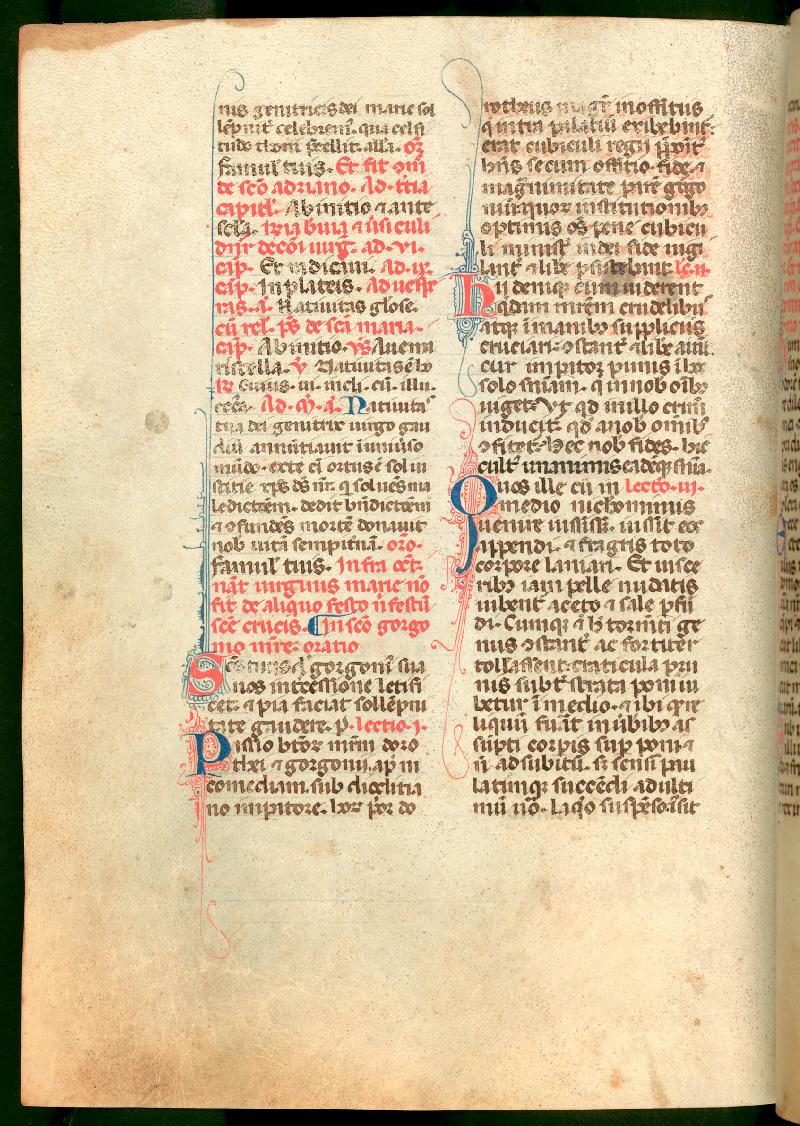 nis genitricis dei marie sol
lēpnit̄ celebrem̄. qua celsi
tudo throni p̄cellit. alla. or̄
famul̄ tuis. Et fit om̄
de sc̄o adriano. Ad. t̄tia
capitl̄. Ab initio ⁊ ante
scl̄a.
ad. vi.
cap̄. Et radicaui. Ad. ix.
cap̄. In plateis. Ad uesp̄
ras. a. Natiuitas gl̄ose.
cū rel̄. p̄s de sc̄a maria.
cap̄. Ab initio. v̄s Aue ma
ris stella. v̄ Natiuitas ē h̄o
Ad. m̄. a. Natiuitas
tua dei genitrix uirgo gau
diū annūtiauit ī uniu̇so
mūdo. ex te ēī ortus ē sol iu
stitie xp̄s ds̄ nr̄. q̇ soluēs ma
ledictōem. dedit bn̄dictōem
⁊ ɔfundēs mortē donauit
nob̄ uitā sempit̄nā. oro.
famul̄ tuis. Infra oct̄.
nat̄ uirginis marie nō
fit de aliquo festo n̄ festū
sc̄e crucis. In sc̄o gorgo
nio mr̄e. oratio
Sc̄s tuus d̄ gorgoni᷒ sua
nos int̄cessione letifi
cet. ⁊ pia faciat sollēpni
tate gaudere. p̄. lectio. i.
Passio bt̄or̄ mr̄m doro
thei ⁊ gorgonii. ap̄ ni
comediam. sub dioclitia
no imp̄atore. hor̄ p̄or do
rotheus maḡr in offitiis
q̄ intra palatiū exibebānt᷒
erat cubiculi regii p̄posit᷒
hn̄s secum offitio. fide. ⁊
magn̄imitate parē gorgo
niū. quor̄ institutionib᷒
optimis oēs pene cubicu
li ministri in dei fide uigi
lant̄ ⁊ libe p̄sistebant. lc̄. ii.
Hii deniq̄ cum uiderent
q̄dam mr̄em crudelib᷒
atq̄ īmanib᷒ suppliciis
cruciari. ɔstant̄ ⁊ libe aiūt.
Cur imp̄ator punis ī hoc
solo sn̄iam. q̄ in nob̄ oīb᷒
uiget. Vt qd̄ in illo crim̄
inducit᷒ qd̄ a nob̄ omīb᷒
ɔfitet᷒. Hec nob̄ fides. hic
cult᷒ unanimis eadēq̄ sn̄ia.
Quos ille cū in lectio. iii.
medio nichominus
uenire iussiss̄. iussit eos
appendi. ⁊ fragris toto
corpore laniari. Et uisce
rib᷒ iam pelle nudatis
iubent̄ aceto ⁊ sale p̄fū
di. Cumq̄ ⁊ h̄ torm̄ti ge
nus ɔstant̄ ac fortiter
tolerassent. craticula pru
nis subt᷒ strata poni iu
betur ī medio. ⁊ ibi q̄ re
liquū fu̇at in u̇berib᷒ as
sūpti corp̄is sup̄ poni. ⁊
n̄ ad subitū. s̄ sensī pau
latimq̄ succendi adulti
mū u̇o. laq̇o suspēsos iussit